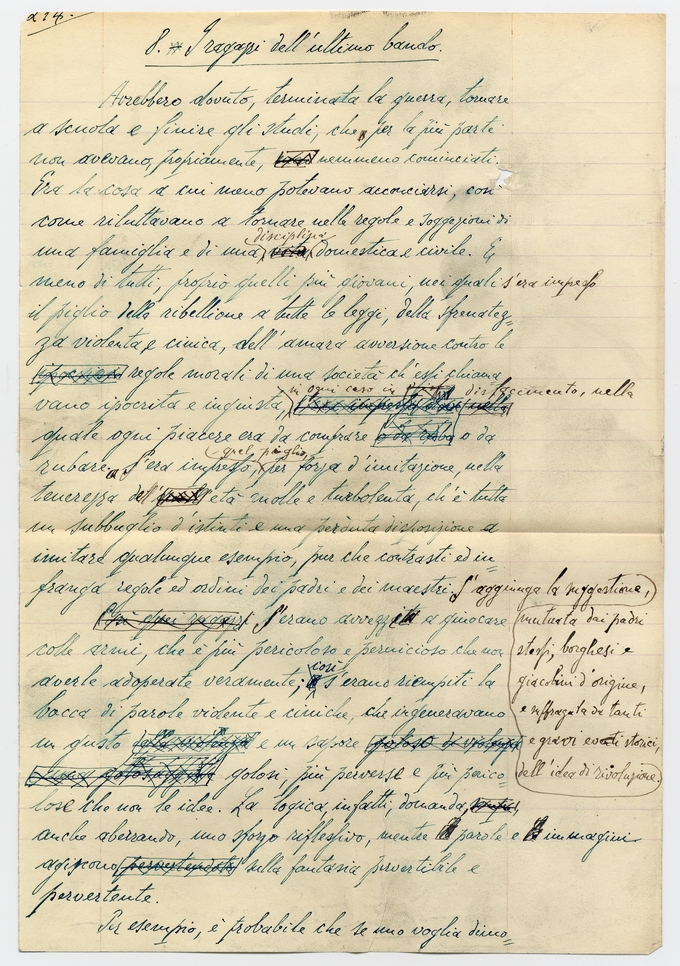 214.
8. I ragazzi dell'ultimo bando.
Avrebbero dovuto, terminata la guerra, tornare
a scuola e finire gli studi, che per la più parte
non avevano, propriamente, nemmeno cominciati.
Era la cosa a cui meno potevano acconciarsi, così
come riluttavano a tornare nelle regole e soggezioni di
disciplina
una famiglia e di una vita domestica e civile. E,
meno di tutti, proprio quelli più giovani, nei quali s'era impresso
il piglio della ribellione a tutte le leggi, della sfrenatez=
za violenta e cinica, dell'amara avversione contro le
regole morali di una società ch'essi chiama
in ogni caso in disfacimento, nella
vano ipocrita e ingiusta,
quale ogni piacere era da comprare o da ruba o da
quel piglio,
rubare. S'era impresso, per forza d'imitazione, nella
tenerezza dell'età molle e turbolenta, ch'è tutta
un subbuglio d'istinti e una perduta disposizione a
imitare qualunque esempio, pur che contrasti ed in=
franga regole ed ordini dei padri e dei maestri. S'aggiunga la suggestione,
mutuata dai padri
stessi, borghesi e
giacobini d'origine,
e suffragata da tanti
e gravi eventi storici,
dell'idea di rivoluzione.
Poi quei ragazzi S'erano avvezzi a giuocare
colle armi, che è più pericoloso e pernicioso che non
così
averle adoperate veramente; s'erano riempiti la
bocca di parole violente e ciniche, che ingeneravano
un gusto e un sapore goloso di violenza
golosi, più perverse e più perico=
lose che non le idee. La logica, infatti, domanda,
anche aberrando, uno sforzo riflessivo, mentre parole e immagini
agiscono pervertendola sulla fantasia pervertibile e
pervertente.
Per esempio, è probabile che se uno voglia dimo=